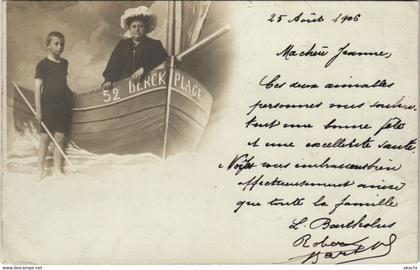 52 BERCK PLAGE
25 Août 1906
Ma chère Jeanne,
Ces deux aimables
personnes vous souhai
tent une bonne fête
et une excellente santé.
Nous vous embrassons bien
affectueusement ainsi
que toute la famille
L. Bartholus
Robert